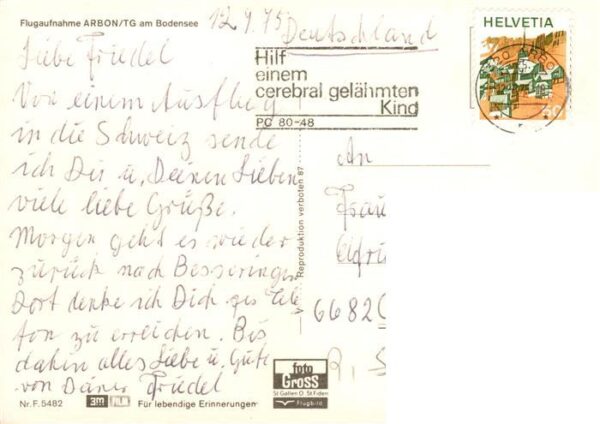 Flugaufnahme ARBON/TG am Bodensee
12.9.75
Deutschland
HELVETIA
Hilf
einem
cerebral gelähmten
Kind
PC 80-48
Liebe Friedel
Von einem Ausflug
in die Schweiz sende
ich Dir u. Deinen Lieben
viele liebe Grüße.
Morgen geht es wieder
zurück nach Besseringen
Dort denke ich Dich per Tele
fon zu erreichen. Bis
dahin alles Liebe u. Gute
von Deiner Friedel
An
Frau
6682
Reproduktion verboten 87
foto
GROSS
St Gallen O St Fiden
Flugbild
Nr. F. 5482
3m
FILM
Für lebendige Erinnerungen